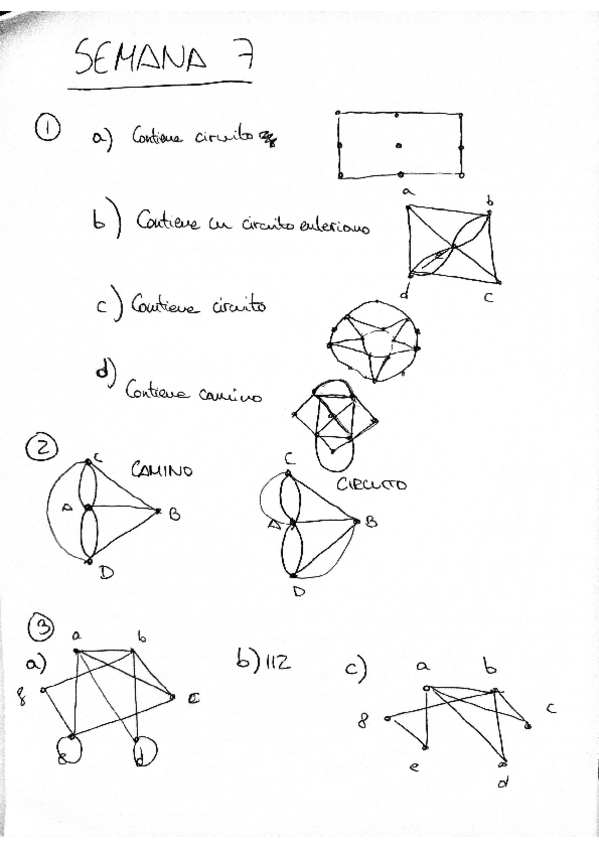 SEMANA 7
1
a) Contiene circuito
b) Contiene un circuito euleriano
a b
d c
c) Contiene circuito
d) Contiene camino
2
CAMINO
C
A B
D
CIRCUITO
C
A B
D
3
a)
a b
g c
d
b) 112
c)
a b
g c
e d